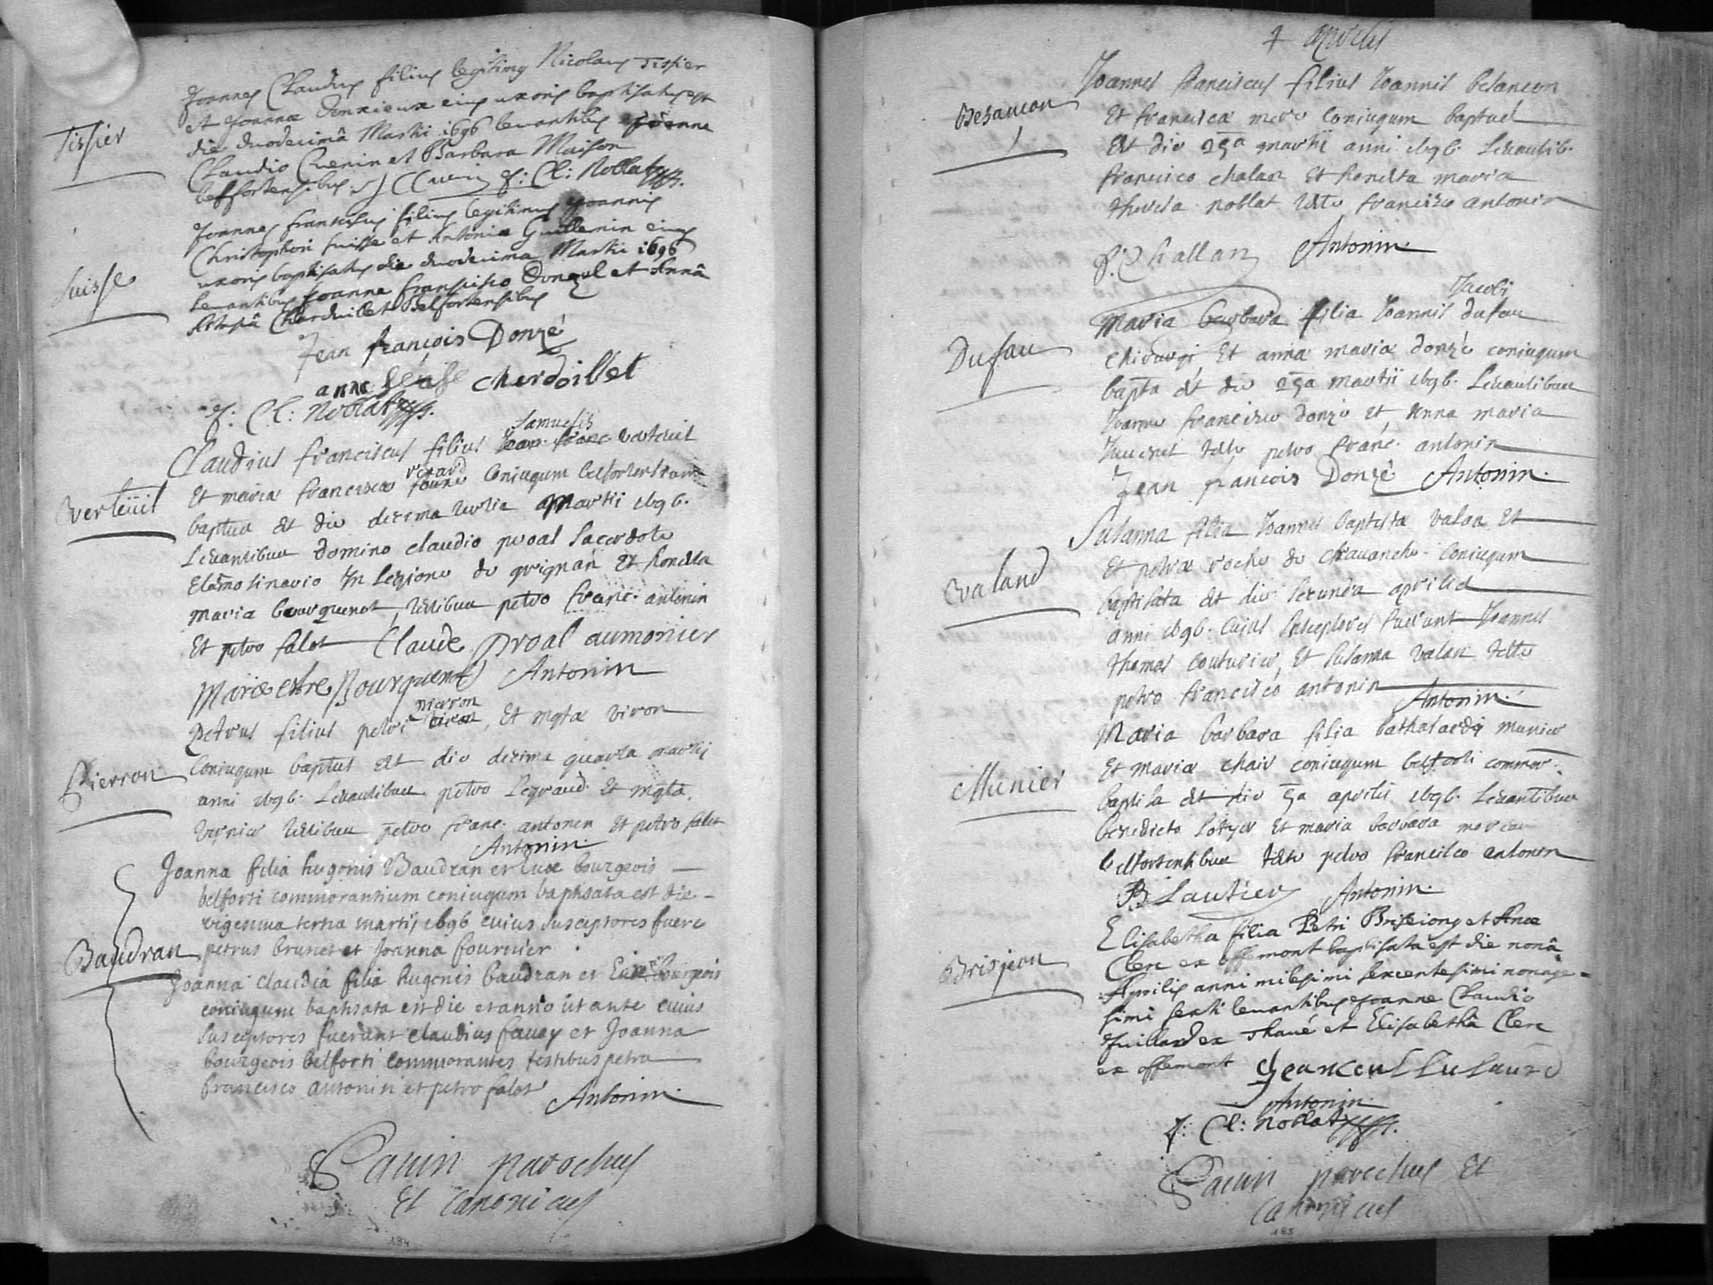 Tissier
Joannes Claudius filius legitimus Nicolaus Tissier
et Joannæ eius uxoris baptisatus est
die duodecimâ Martii 1696 levantibus Joanne
Claudio Cuenin et Barbara Maison
beffortensibus. J C Cuenin f: Cl: Noblat
Suisse
Joannes franciscus filius legitimus Joannis
Christophori suisse et Antoniæ Guillemin eius
uxoris baptisatus die duodecima Martii 1696
levantibus Joanne francisco Donzel et Annâ
Cherduillet Belfortensibus
Jean françois Donzé
anne cherdoillet
f: Cl: Noblat
Samuelis
Claudius franciscus filius verteuil
Verteüil
Et mariæ franciscæ Coniugum belfortensium
baptus est die decima tertia Martii 1696.
Levantibus domino claudio proal sacerdote
Elemosinario In Legione de grignan Et honesta
maria bourquenot, testibus petro franc. antonin
Et petro falot Claude Proal aumonier
Marie Bourquenot Antonin
pierron
Petrus filius petri, Et mgtæ viron
Pierron
Coniugum baptus est die decima quarta martij
anni 1696. Levantibus petro Legraud Et mgta.
testibus petro franc. antonin Et petro falot
Antonin.
Joanna filia hugonis Baudran et Euæ bourgeois
belforti commorantium coniugum baptisata est die
vigesima tertia martij 1696 cuius susceptores fuere
Baudran
petrus brunet et Joanna fournier
Joanna claudia filia hugonis baudran et Euæ bourgeois
coniugum baptisata est die et anno ut ante cuius
susceptores fuerunt claudius fauey et Joanna
bourgeois belforti commorantes testibus petro
francisco antonin et petro falot
Antonin
parochus
Et Canonicus
184
+ aprilis
Joannes franciscus filius Joannis besancon
Besancon
Et franciscæ coniugum baptus
Est die 25a martii anni 1696. Levantib.
francisco chalan Et honesta maria
theresa noblat teste francisco antonin
f. Challan Antonin.
Jacobi
Maria barbara filia Joannis dufau
Dufau
chirurgi Et annæ mariæ donzé coniugum
bapta est die 25a martii 1696. Levantibus
Joanne francisco donzé et Anna maria
teste petro franc. antonin
Jean francois Donzé Antonin.
Susanna filia Joannis baptistæ valan Et
Valand
Et petræ roche de chavanche coniugum
baptisata est die secunda aprilis
anni 1696. cuius susceptores fuerunt Joannes
thomas couturier, Et susanna valan teste
petro francisco antonin
Antonin.
Maria barbara filia munier
Munier
Et mariæ chair coniugum belforti commor.
baptisa est die 5a aprilis 1696. Levantibus
benedicto Et maria barbara
belfortensibus teste petro francisco antonin
B Lautier Antonin.
Elisabetha filia Petri Brisjeon et Annæ
Brisjeon
Clerc ex offemont baptisata est die nonâ
Aprilis anni milesimi sexcentesimi nonage-
simi sexti levantibus Joanne Claudio
ex Thaué et Elisabethâ Clerc
ex offemont
Antonin.
f: Cl: Noblat
parochus Et
Canonicus
185